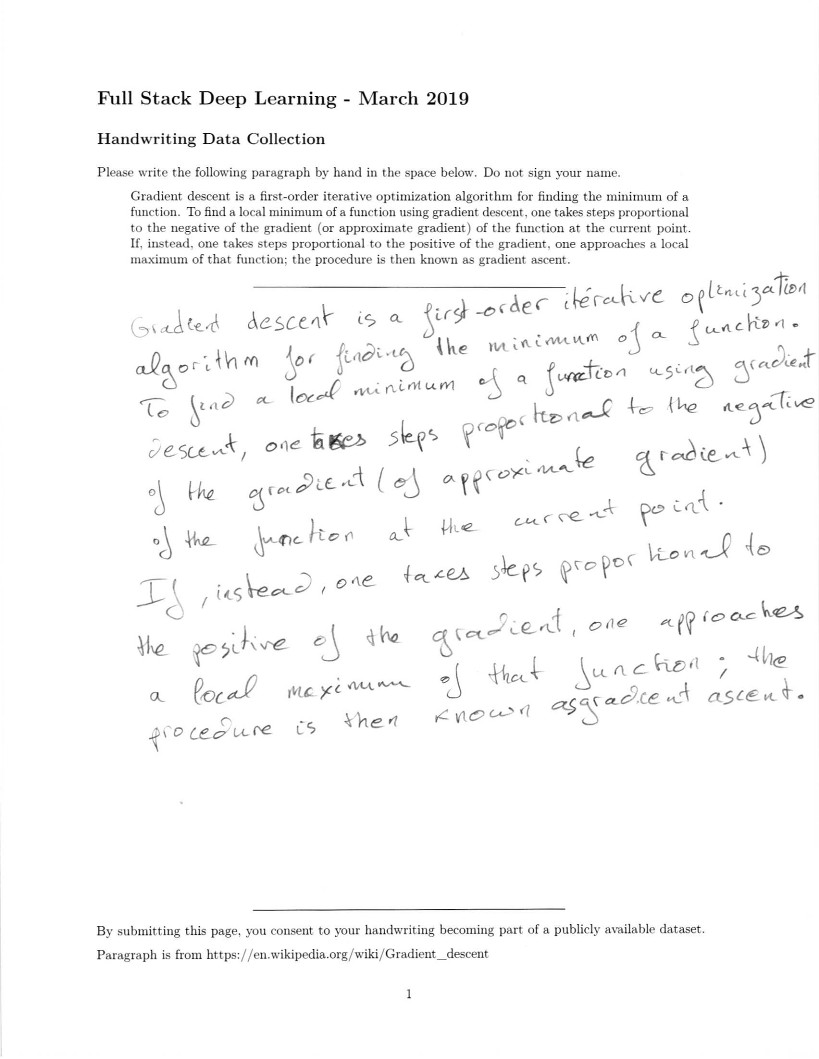 Full Stack Deep Learning - March 2019
Handwriting Data Collection
Please write the following paragraph by hand in the space below. Do not sign your name.
Gradient descent is a first-order iterative optimization algorithm for finding the minimum of a
function. To find a local minimum of a function using gradient descent, one takes steps proportional
to the negative of the gradient (or approximate gradient) of the function at the current point.
If, instead, one takes steps proportional to the positive of the gradient, one approaches a local
maximum of that function; the procedure is then known as gradient ascent.
Gradient descent is a first-order itérative optimization
algorithm for finding the minimum of a function.
To find a local minimum of a function using gradient
descent, one takes steps proportional to the negative
of the gradient (of approximate gradient)
of the function at the current point.
If, instead, one takes steps proportional to
the positive of the gradient, one approaches
a local maximum of that function; the
procedure is then known as gradient ascent.
By submitting this page, you consent to your handwriting becoming part of a publicly available dataset.
Paragraph is from https://en.wikipedia.org/wiki/Gradient_descent
1